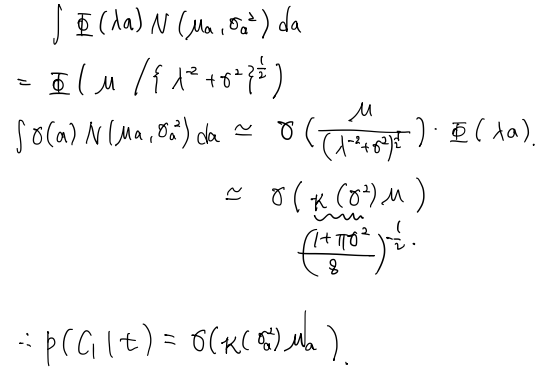 ∫ Φ(λa) N(μa, σa²) da
= Φ( μ / {λ⁻² + σ²}^½ )
∫σ(a) N(μa, σa²) da ≃ σ( μ / (λ⁻² + σ²)^½ ) · Φ(λa).
≃ σ( κ(σ²) μ )
( (1 + πσ²) / 8 )^-½ .
∴ p(C₁ | t) = σ(κ(σa²) μa).